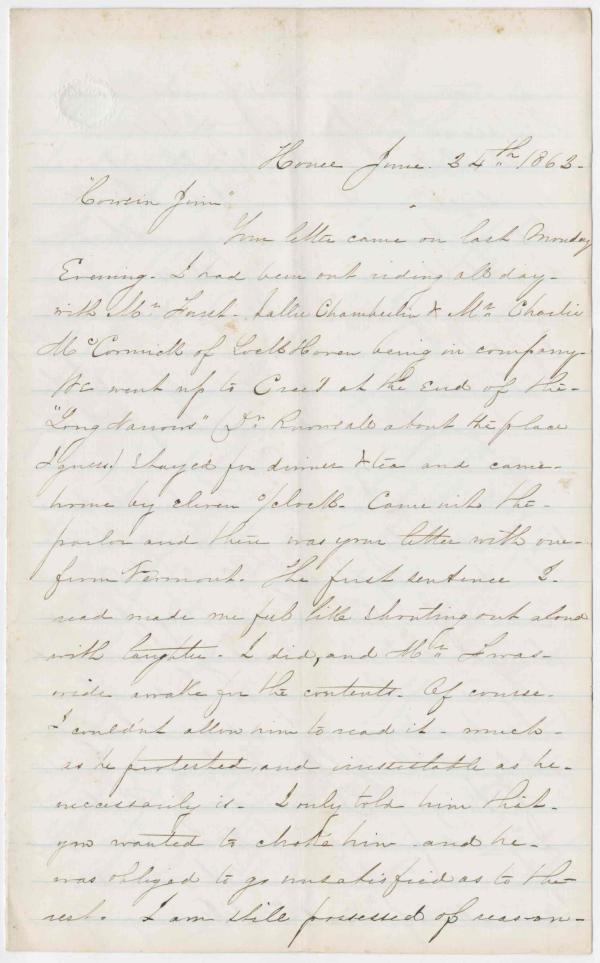 Home June. 24th 1863-
"Cousin Jim"
Your letter came on last Monday
Evening. I had been out riding all day-
with Mr Forest- Sallie Chamberlin & Mr Charlie
McCormick of Lock Haven being in company-
We went up to Cree's at the End of the-
"Long Narrows" (Dr knows all about the place
I guess) stayed for dinner & tea and came-
home by eleven o'clock- Came into the-
parlor and there was your letter with one-
from Vermont. The first sentence I-
read made me feel like shouting out aloud
with laughter- I did, and Mr F was-
wide awake for the contents- Of course-
I couldn't allow him to read it- much-
as he protested, and irresistable as he-
necessarily is- I only told him that-
you wanted to choke him- and he-
was obliged to go unsatisfied as to the-
rest. I am still possessed of reason-